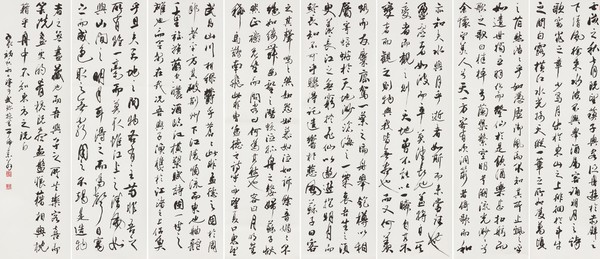 壬戌之秋七月既望蘇子與客泛舟遊於赤壁之
下清風徐來水波不興舉酒屬客誦明月之詩歌窈窕
之章少焉月出於東山之上徘徊於斗牛
之間白露橫江水光接天縱一葦之所如凌萬頃
之茫然浩浩乎如馮虛御風而不知其所止飄飄乎如遺
世獨立羽化而登仙於是飲酒樂甚扣舷而
歌之歌曰桂棹兮蘭槳擊空明兮泝流光渺渺兮
余懷望美人兮天一方客有吹洞簫者倚歌而和
亦知夫水與月乎逝者如斯而未嘗往也
盈虛者如彼而卒莫消長也蓋將自其變
者而觀之則天地曾不能以一瞬自其不
變者而觀之則物與我皆無盡也而又何羨
駕一葉之扁舟舉匏樽以相
屬寄蜉蝣於天地渺滄海之一粟哀吾生之須
臾羨長江之無窮挾飛仙以遨遊抱明月而
長終知不可乎驟得託遺響於悲風蘇子曰客
之其聲嗚嗚然如怨如慕如泣如訴餘音嫋嫋不
絕如縷舞幽壑之潛蛟泣孤舟之嫠婦蘇子愀
然正襟危坐而問客曰何為其然也客曰月明星
稀烏鵲南飛此非曹孟德之詩乎西望夏口東望
武昌山川相繆鬱乎蒼蒼此非孟德之困於周
郎者乎方其破荊州下江陵順流而東也舳艫
千里旌旗蔽空釃酒臨江橫槊賦詩固一世之
雄也而今安在哉況吾與子漁樵於江渚之上侶魚
乎且夫天地之間物各有主苟非吾之
所有雖一毫而莫取惟江上之清風
與山間之明月耳得之而為聲目遇
之而成色取之無禁用之不竭是造物
者之無盡藏也而吾與子之所共樂客喜而
笑洗盞更酌肴核既盡杯盤狼藉相與枕
藉乎舟中不知東方之既白